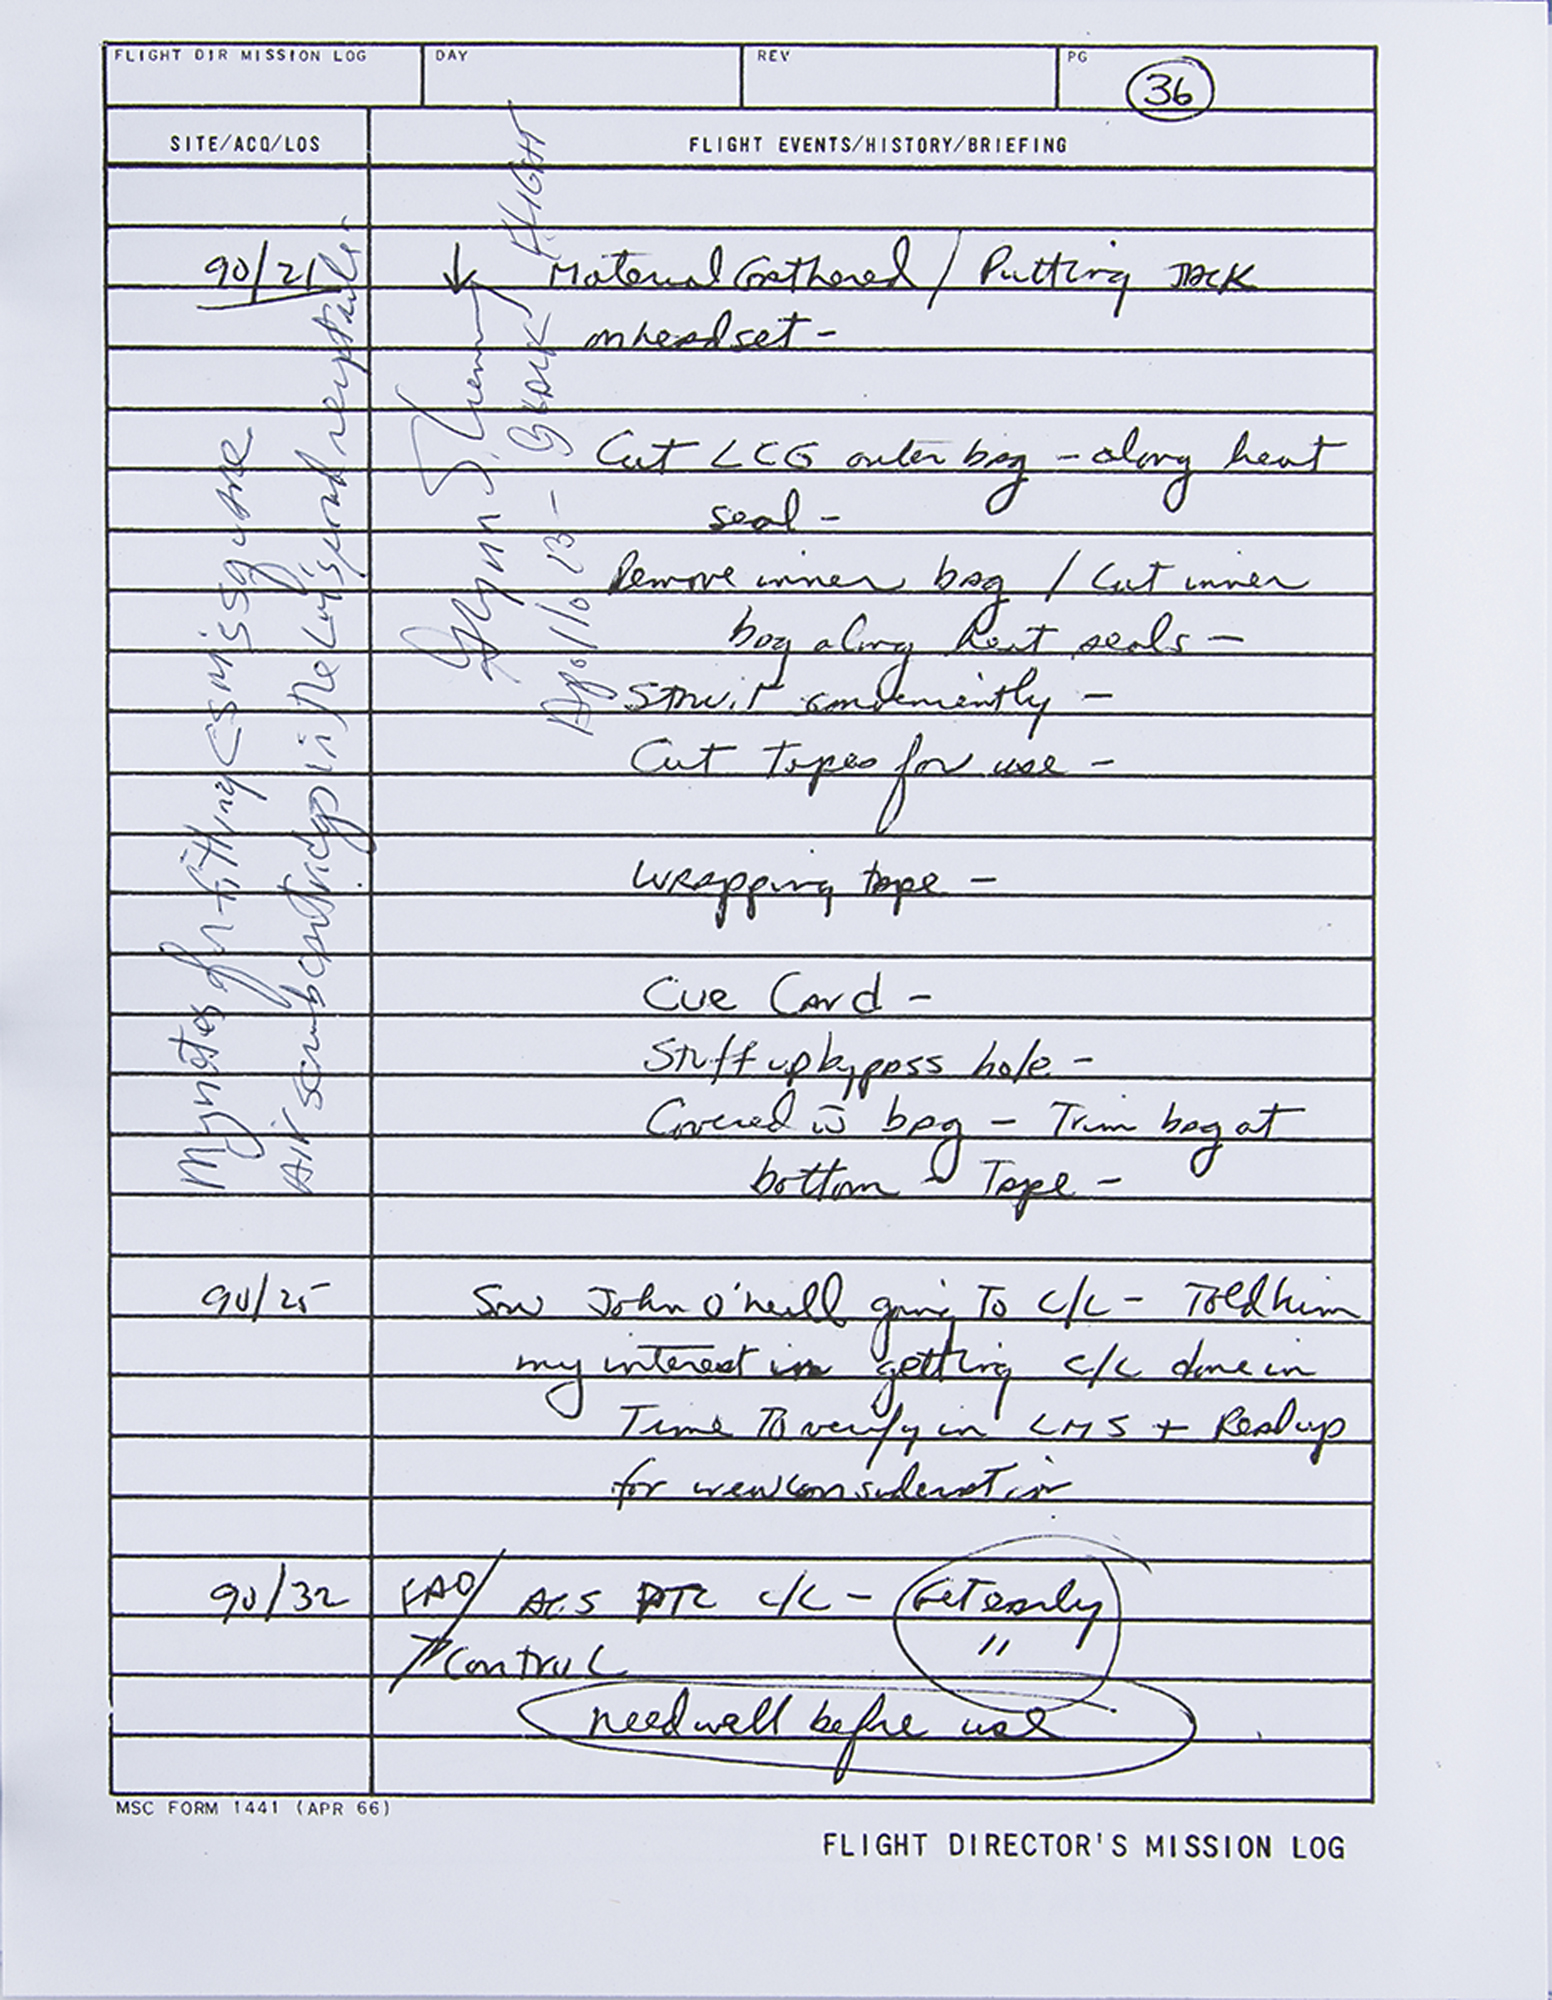 FLIGHT DIR MISSION LOG DAY REV PG 36
SITE/ACQ/LOS FLIGHT EVENTS/HISTORY/BRIEFING
90/21 ↓ Material Gathered / Putting JACK
on headset -
Cut LCG outer bag - along heat
seal -
Remove inner bag / Cut inner
bag along heat seals -
Stow it conveniently -
Cut Tapes for use -
Wrapping tape -
Cue Card -
Stuff up bypass hole -
Covered w̄ bag - Trim bag at
bottom - Tape -
90/25 Saw John O'neill going To C/L - Told him
my interest in getting C/L done in
Time To verify in LMS + Readup
for crew consideration
90/32 FAO/ AGS PTC C/L - Get early
Control "
need well before use
My notes for fitting CSM's square
air scrub cartridges in the LM's round receptacle -
Glynn S. Lunney
Apollo 13 - BLACK FLIGHT
MSC FORM 1441 (APR 66)
FLIGHT DIRECTOR'S MISSION LOG